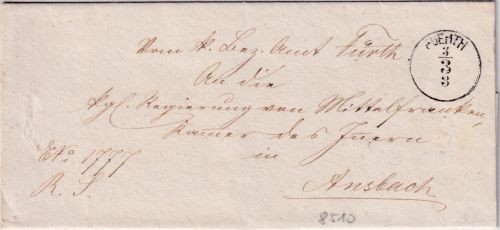 Vom k. Bez. Amt Fürth
FUERTH
3
3
3
An die
kgl. Regierung von Mittelfranken,
Kamer des Innern
in
Ansbach
ENo 1777
R. S.
8510